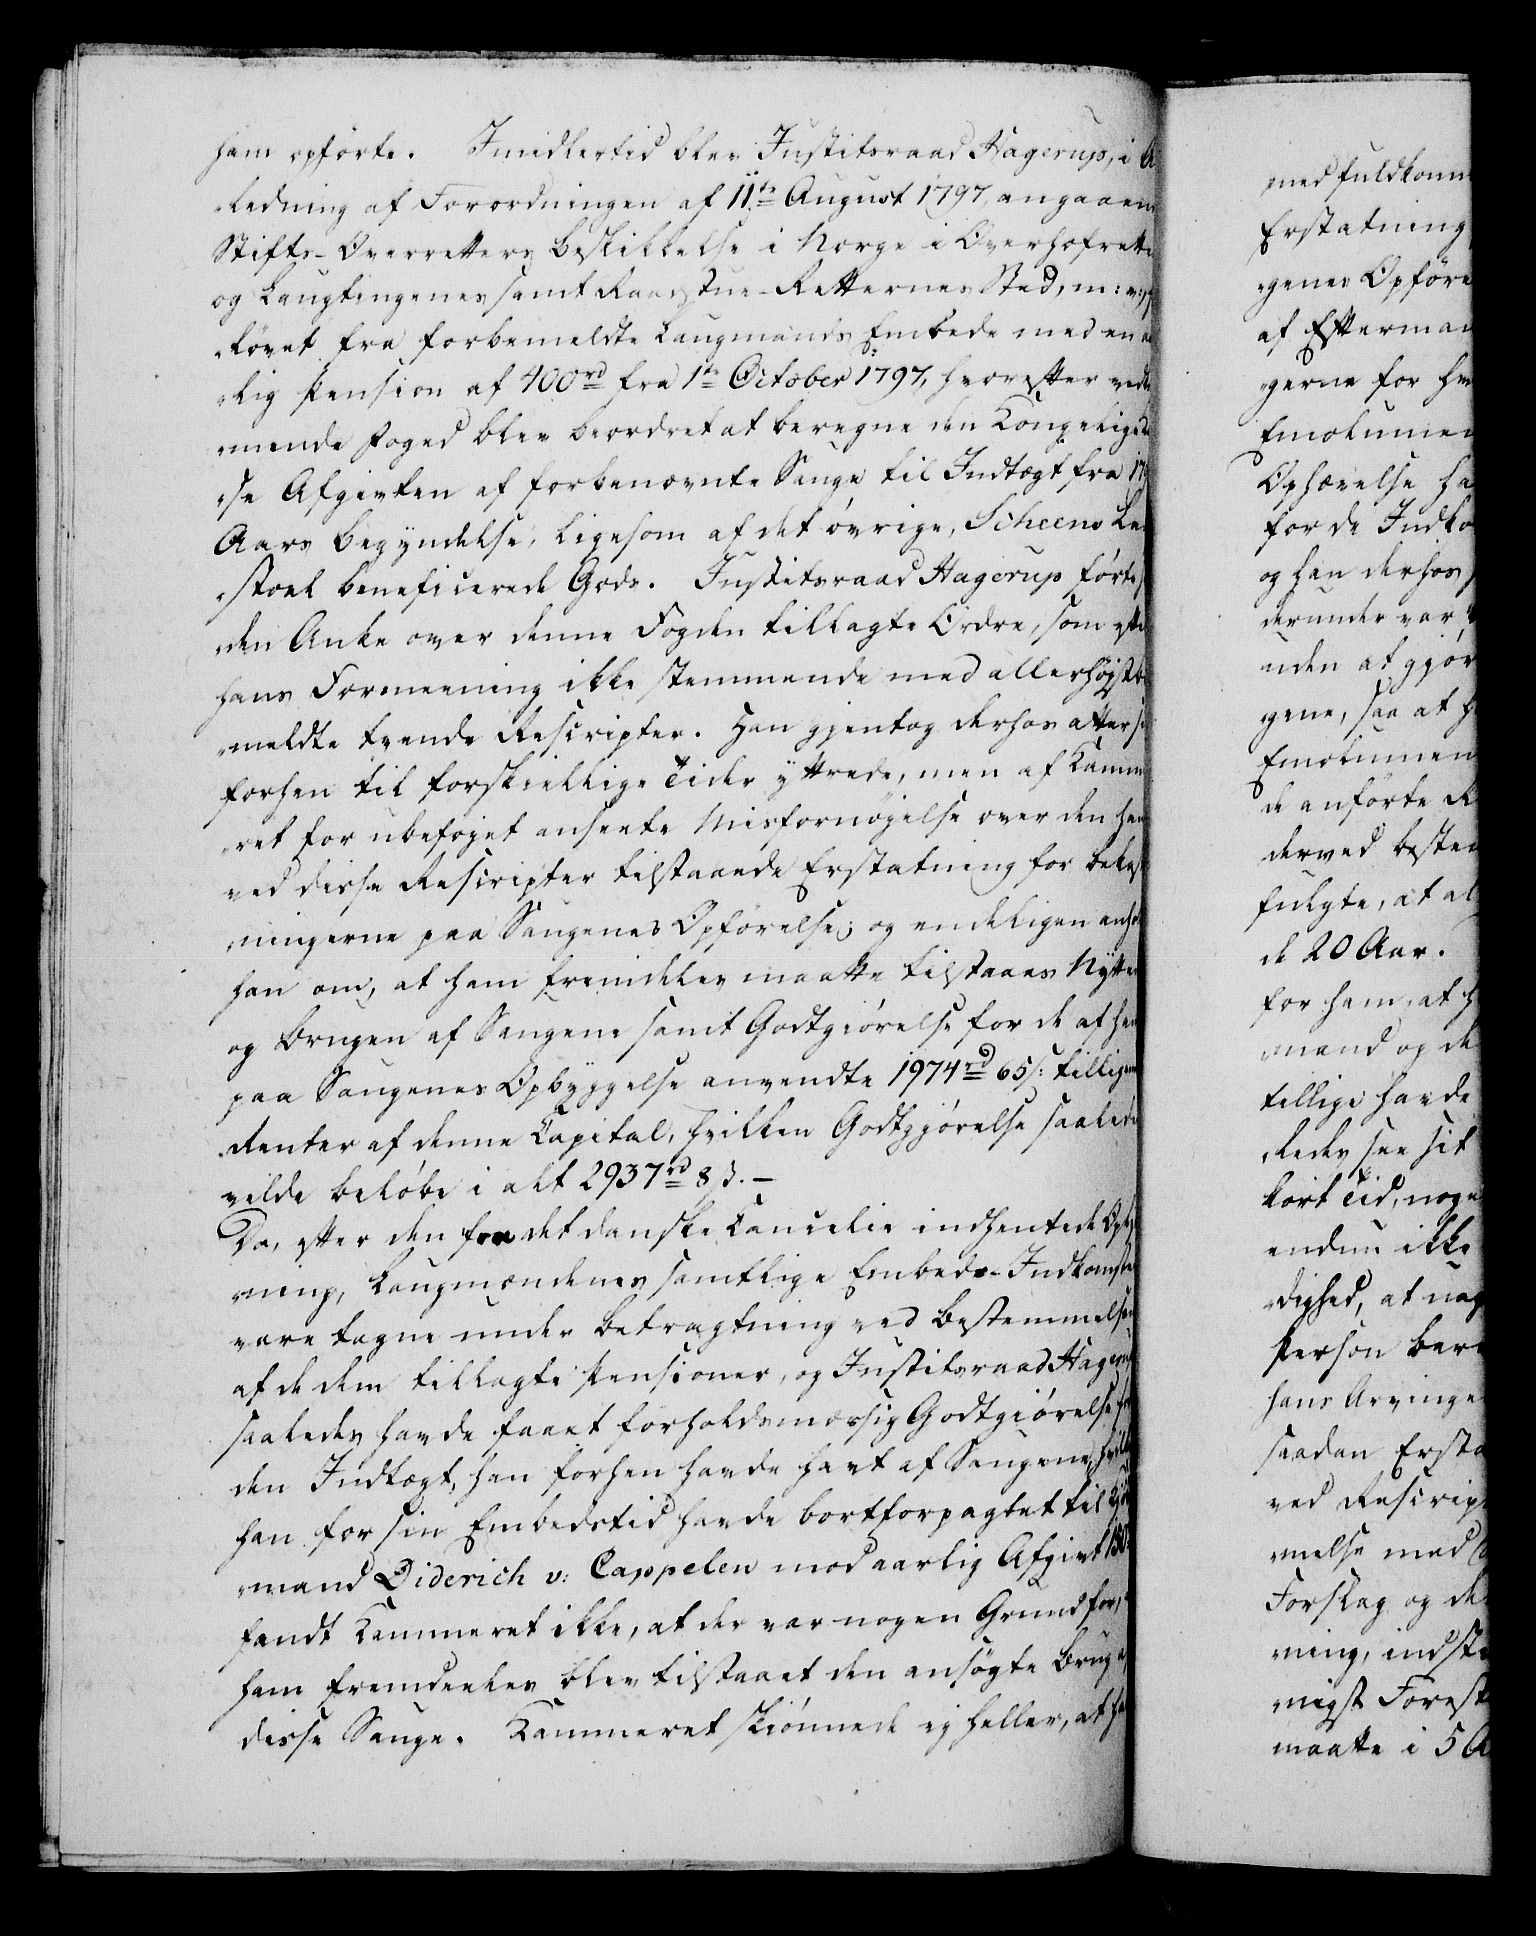 ham opförte. Imidlertid blev Justitsraad Hagerup, i A
ledning af Forordningen af 11te August 1797, angaaen
Stifts-Overretters Beskikkelse i Norge i Overhofrette
og Laugtingenes samt Raadstue-Retternes Sted, m: v:
løvet fra forbemeldte Laugmands Embede med en
lig Pension af 400rd fra 1te October 1797, hvorefter vedk
mende Foged blev beordret at beregne den Kongelige
se Afgivten af forbenævnte Sauge til Indtægt fra 179
Aars Begyndelse, ligesom af det øvrige, Scheens La
stoel beneficerede Gods. Justitsraad Hagerup førte
den Anke over denne Fogden tillagte Ordre, som efter
hans Formeening ikke stemmende med allerhøjstbe
meldte tvende Rescripter. Han gjentog derhos atter
forhen til forskiellige Tider yttrede, men af Kamme
ret for ubeføjet ansete Misfornøjelse over den ham
ved disse Rescripter tilstaaede Erstatning for bekost
ningerne paa Saugenes Opførelse; og endeligen anholdt
han om, at ham fremdeles maatte tilstaaes Nytten
og Brugen af Saugene samt Godtgiørelse for de af ham
paa Saugenes Opbyggelse anvendte 1974rd 65s: tilligem
Renter af denne Capital, hvilken Godtgjørelse saaledes
vilde beløbe i alt 2937rd 8s. -
Da, efter den fra det danske Cancelie indhentede Oply
ning, Laugmændenes samtlige Embeds-Indkomster
vare tagne under Betragtning ved Bestemmelsen
af de dem tillagte Pensioner, og Justitsraad Hagerup
saaledes havde faaet forholdsmæssig Godtgiørelse for
den Indtægt, han forhen havde havt af Saugene, hvilke
han for sin Embedstid havde bortforpagtet til Kjøb
mand Diderich v: Cappelen mod aarlig Afgivt 150
fandt Kammeret ikke, at der var nogen Grund for,
ham fremdeeles blev tilstaaet den ansøgte Brug af
disse Sauge. Kammeret skiønnede ej heller, at ha
med fuldkomm
Erstatning
genes Opføre
af Efterman
gerne for h
Emolumen
Ophævelse ha
for de Indko
og han derhos
derunder var
uden at gjør
gene, saa at h
Emolumen
de anførte R
derved bestem
fulgte, at al
de 20 Aar.
for ham, at h
mand og de
tillige havde
ledes see sit
kort Tid, noge
endnu ikke
dighed, at nog
Person bar
hans Arvinge
saadan Ersta
ved Rescript
melse med
Forslag og de
ning, indst
nigst Forest
maatte i 5 A